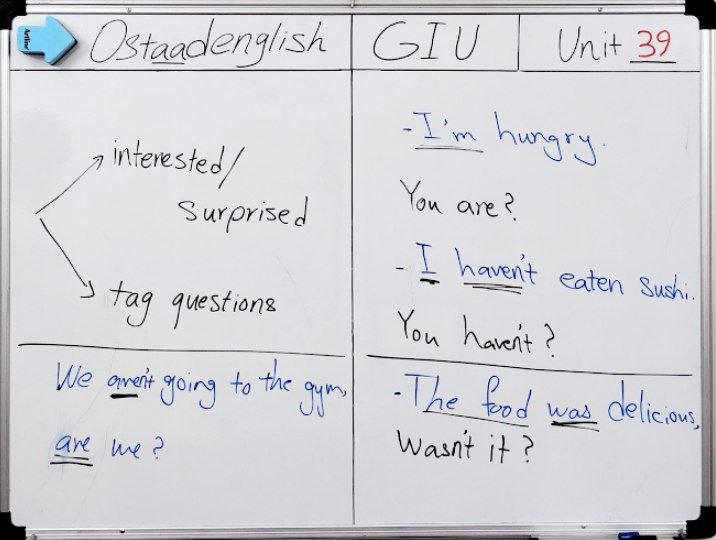 Artline
Ostaadenglish
GIU
Unit 39
interested/
surprised
tag questions
We aren't going to the gym,
are we?
- I'm hungry.
You are?
- I haven't eaten sushi.
You haven't?
- The food was delicious,
Wasn't it?